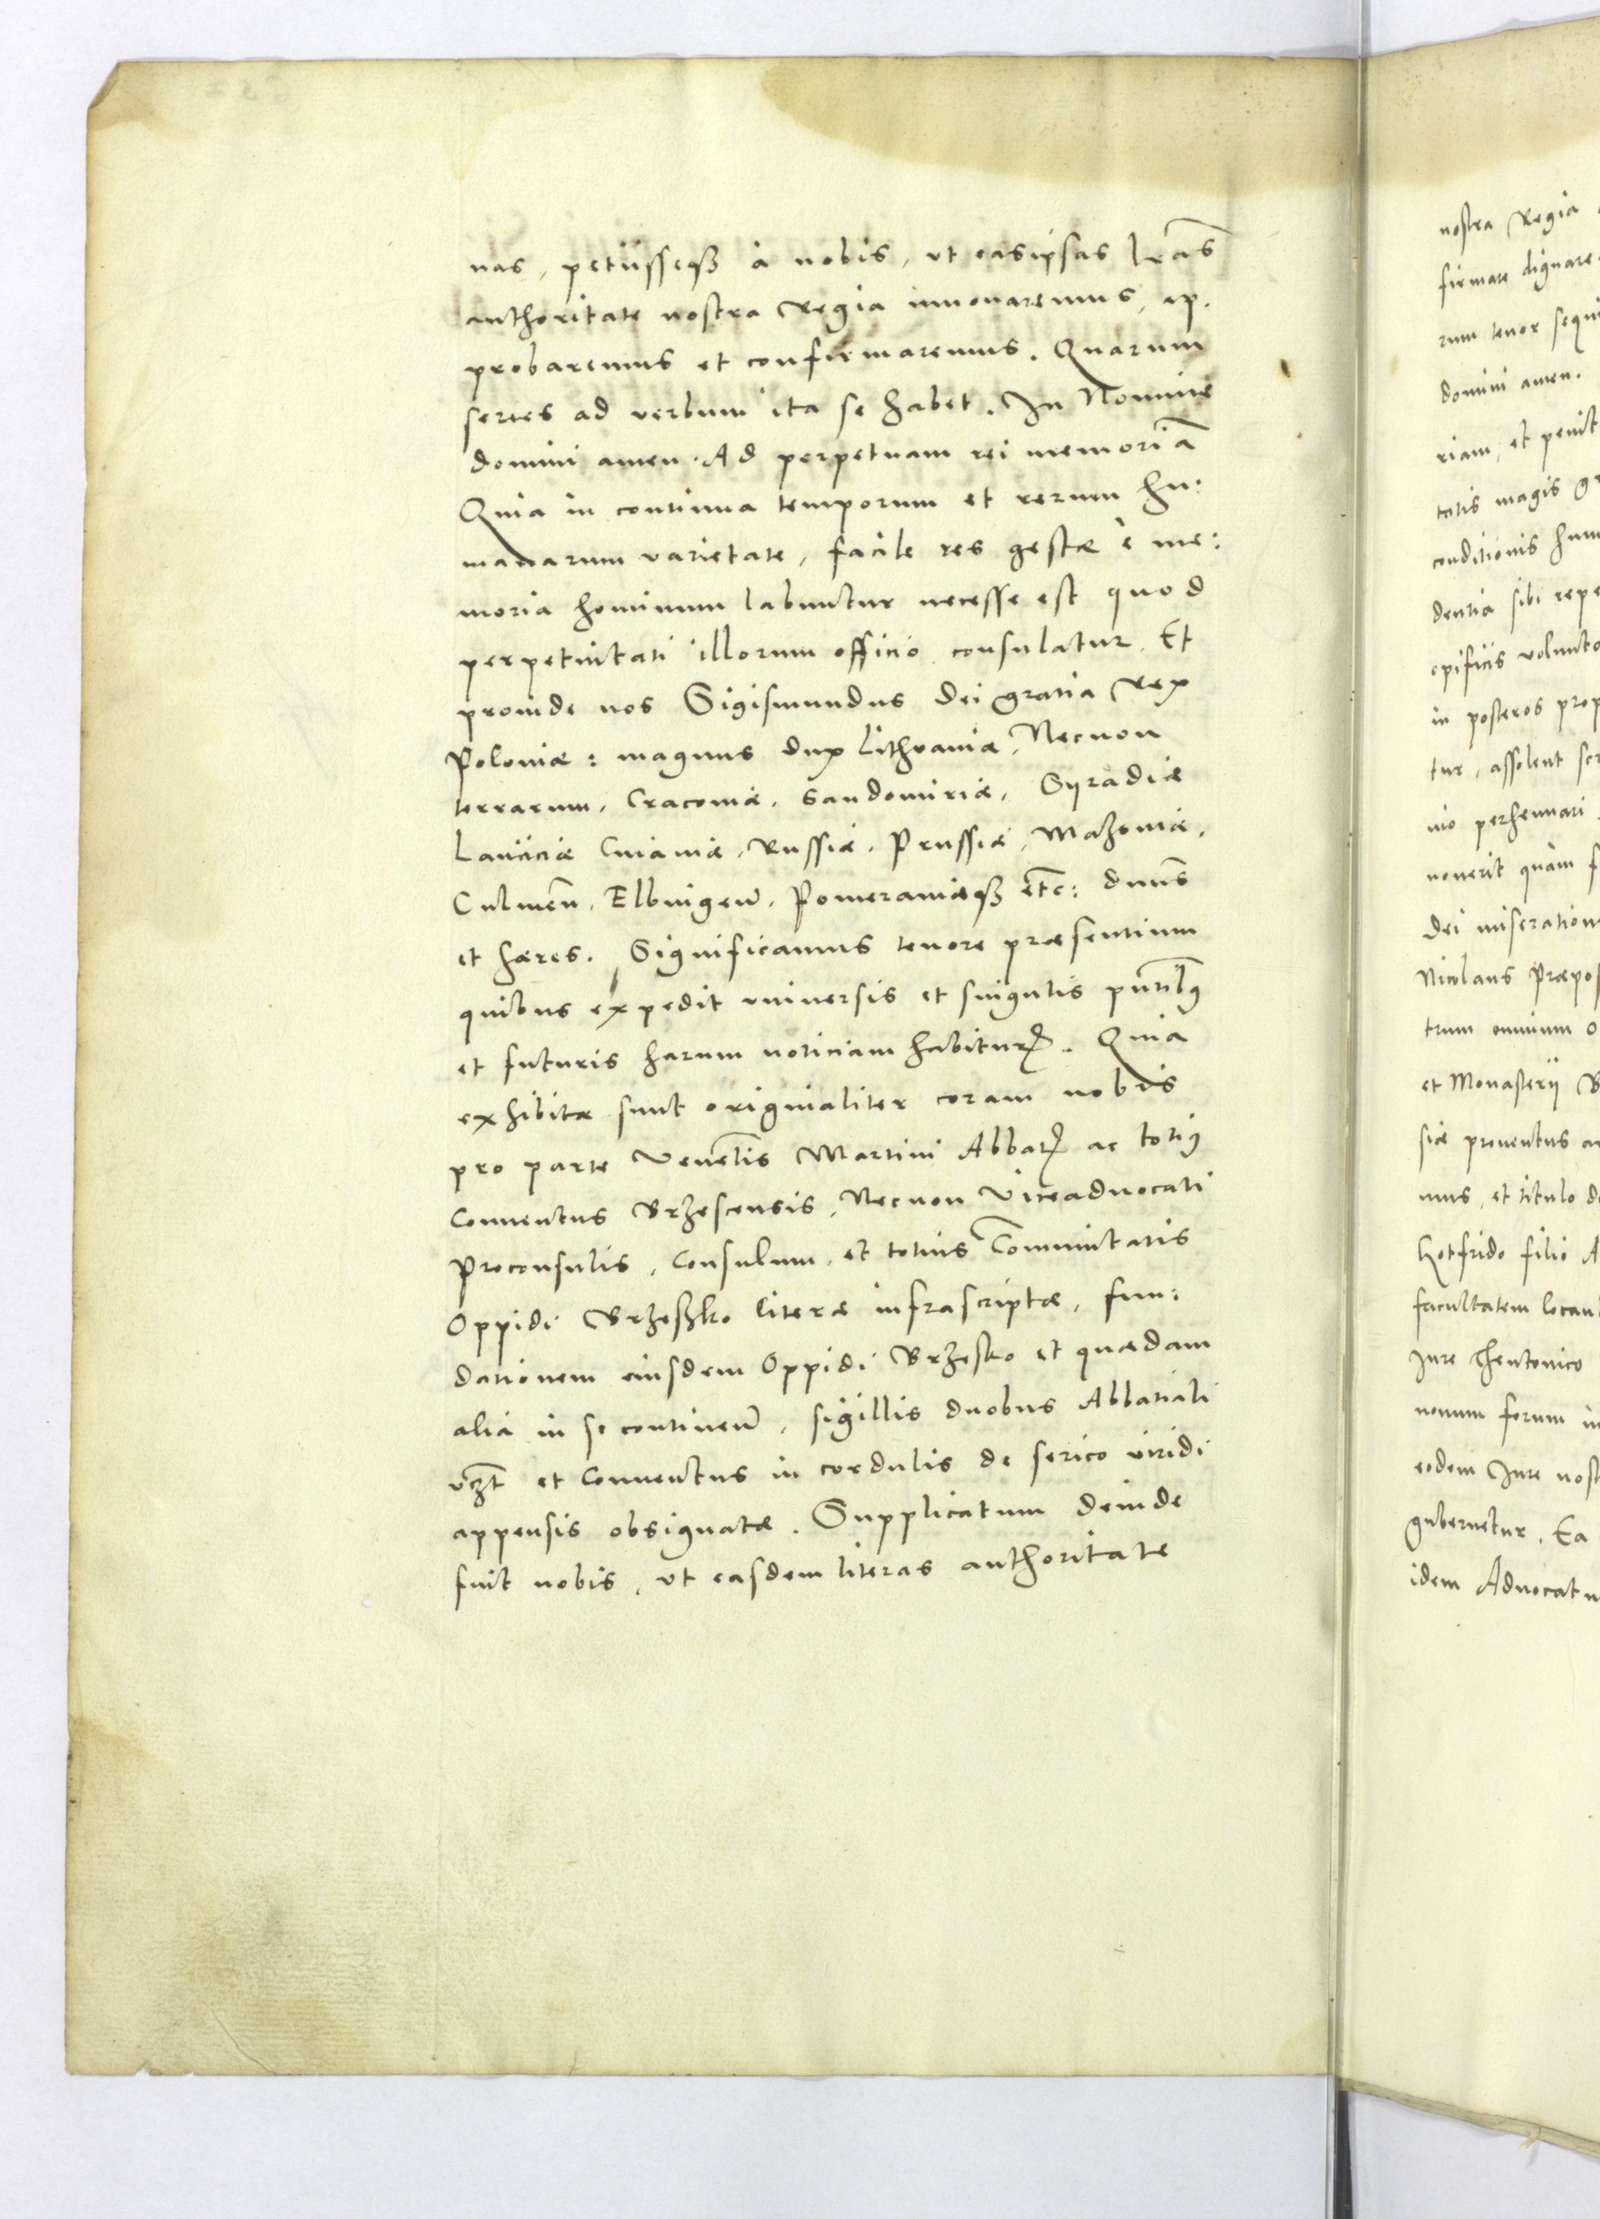 nas, petiisseqz à nobis, vt easipsas lrãs
authoritate nostra Regia innouaremus, ap.
probaremus et confirmaremus. Quarum
series ad verbum ita se habet. In Nomine
domini amen. Ad perpetuam rei memoriã
Quia in continua temporum et rerum hu:
manarum varietate, facile res gestæ è me:
moria hominum labuntur necesse est quod
perpetuitati illorum officio consulatur. Et
proinde nos Sigismundus Dei gratia Rex
Poloniæ: magnus dux Lithvaniæ, Necnon
terrarum, Cracoviæ, Sandomiriæ, Syradiæ
Lanciciæ Cuiaviæ, Russiæ, Prussiæ, Mazoviæ,
Culmeñ, Elbingeñ, Pomeraniæqz etc: dnus
et hæres. Significamus tenore præsentium
quibus expedit vniuersis et singulis pñtibꝯ
et futuris harum noticiam habiturꝭ. Quia
exhibitæ sunt originaliter coram nobis
pro parte Veneñlis Martini Abbatꝭ ac totiꝯ
Conuentus Brzescensis, Necnon Viceaduocati
Proconsulis, Consulum, et totius Com̃unitatis
Oppidi Brzeszko literæ infrascriptæ, fun:
dationem eiusdem Oppidi Brzesko et quædam
alia in se contineñ, sigillis duobus Abbatiali
vzt et Conuentus in cordulis de serico viridi
appensis obsignatæ. Supplicatum deinde
fuit nobis, vt easdem literas authoritate
nostra Regia
firmare dignare
rum tenor sequi
domini amen.
riam, et penit
tatis magis gr
conditionis hum
dentia sibi repe
opificis volunta
in posteros prop
tur, assolent scr
nio perhennari
nouerit quàm f
Dei miseration
Nicolaus Præpos
trum omnium o
et Monasterij B
siæ prouentus au
mus, et titulo do
Gotfrido filio A
facultatem locan
Iure Theutonico
nouum forum in
eodem Iure nost
gubernetur. Ea
idem Aduocatu